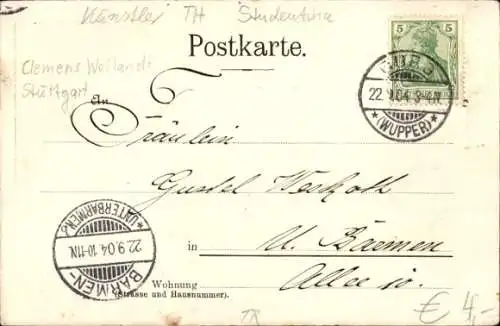 Künstler TH Studentika
5 5
Postkarte.
Clemens
Stuttgart
BURG
22.9.04 3-4N.
* (WUPPER) *
An
Fräulein
Gustel
in U. Barmen
Allee 10.
Wohnung
(Strasse und Hausnummer).
BARMEN-
22.9.04.10-11N.
* UNTERBARMEN *
TR
€ 4,-